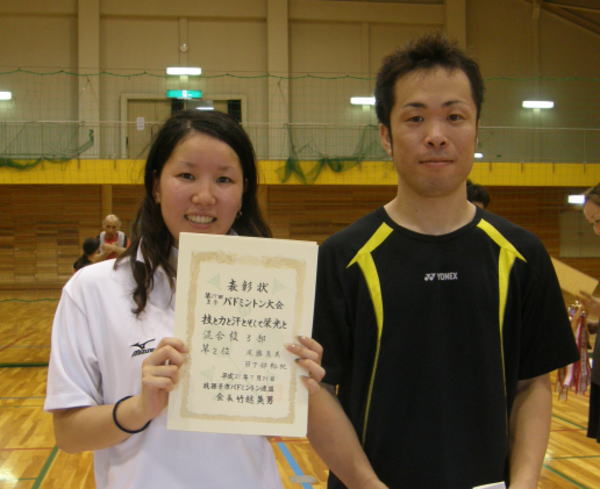 表彰状
第27回
夏季 バドミントン大会
技と力と汗とそして栄光と
混合複3部
第2位
平成21年7月26日
我孫子市バドミントン連盟
会長 竹越英男
YONEX
MIZUNO